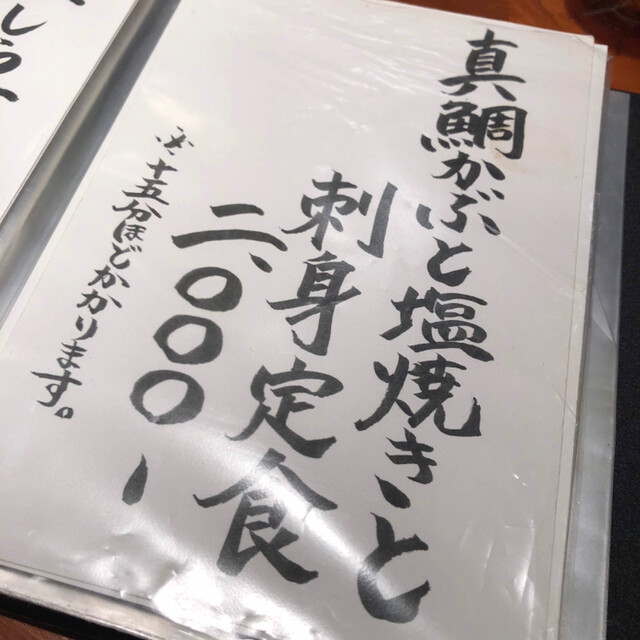 真鯛かぶと塩焼きと
刺身定食
二、〇〇〇ー
十五分ほどかかります。